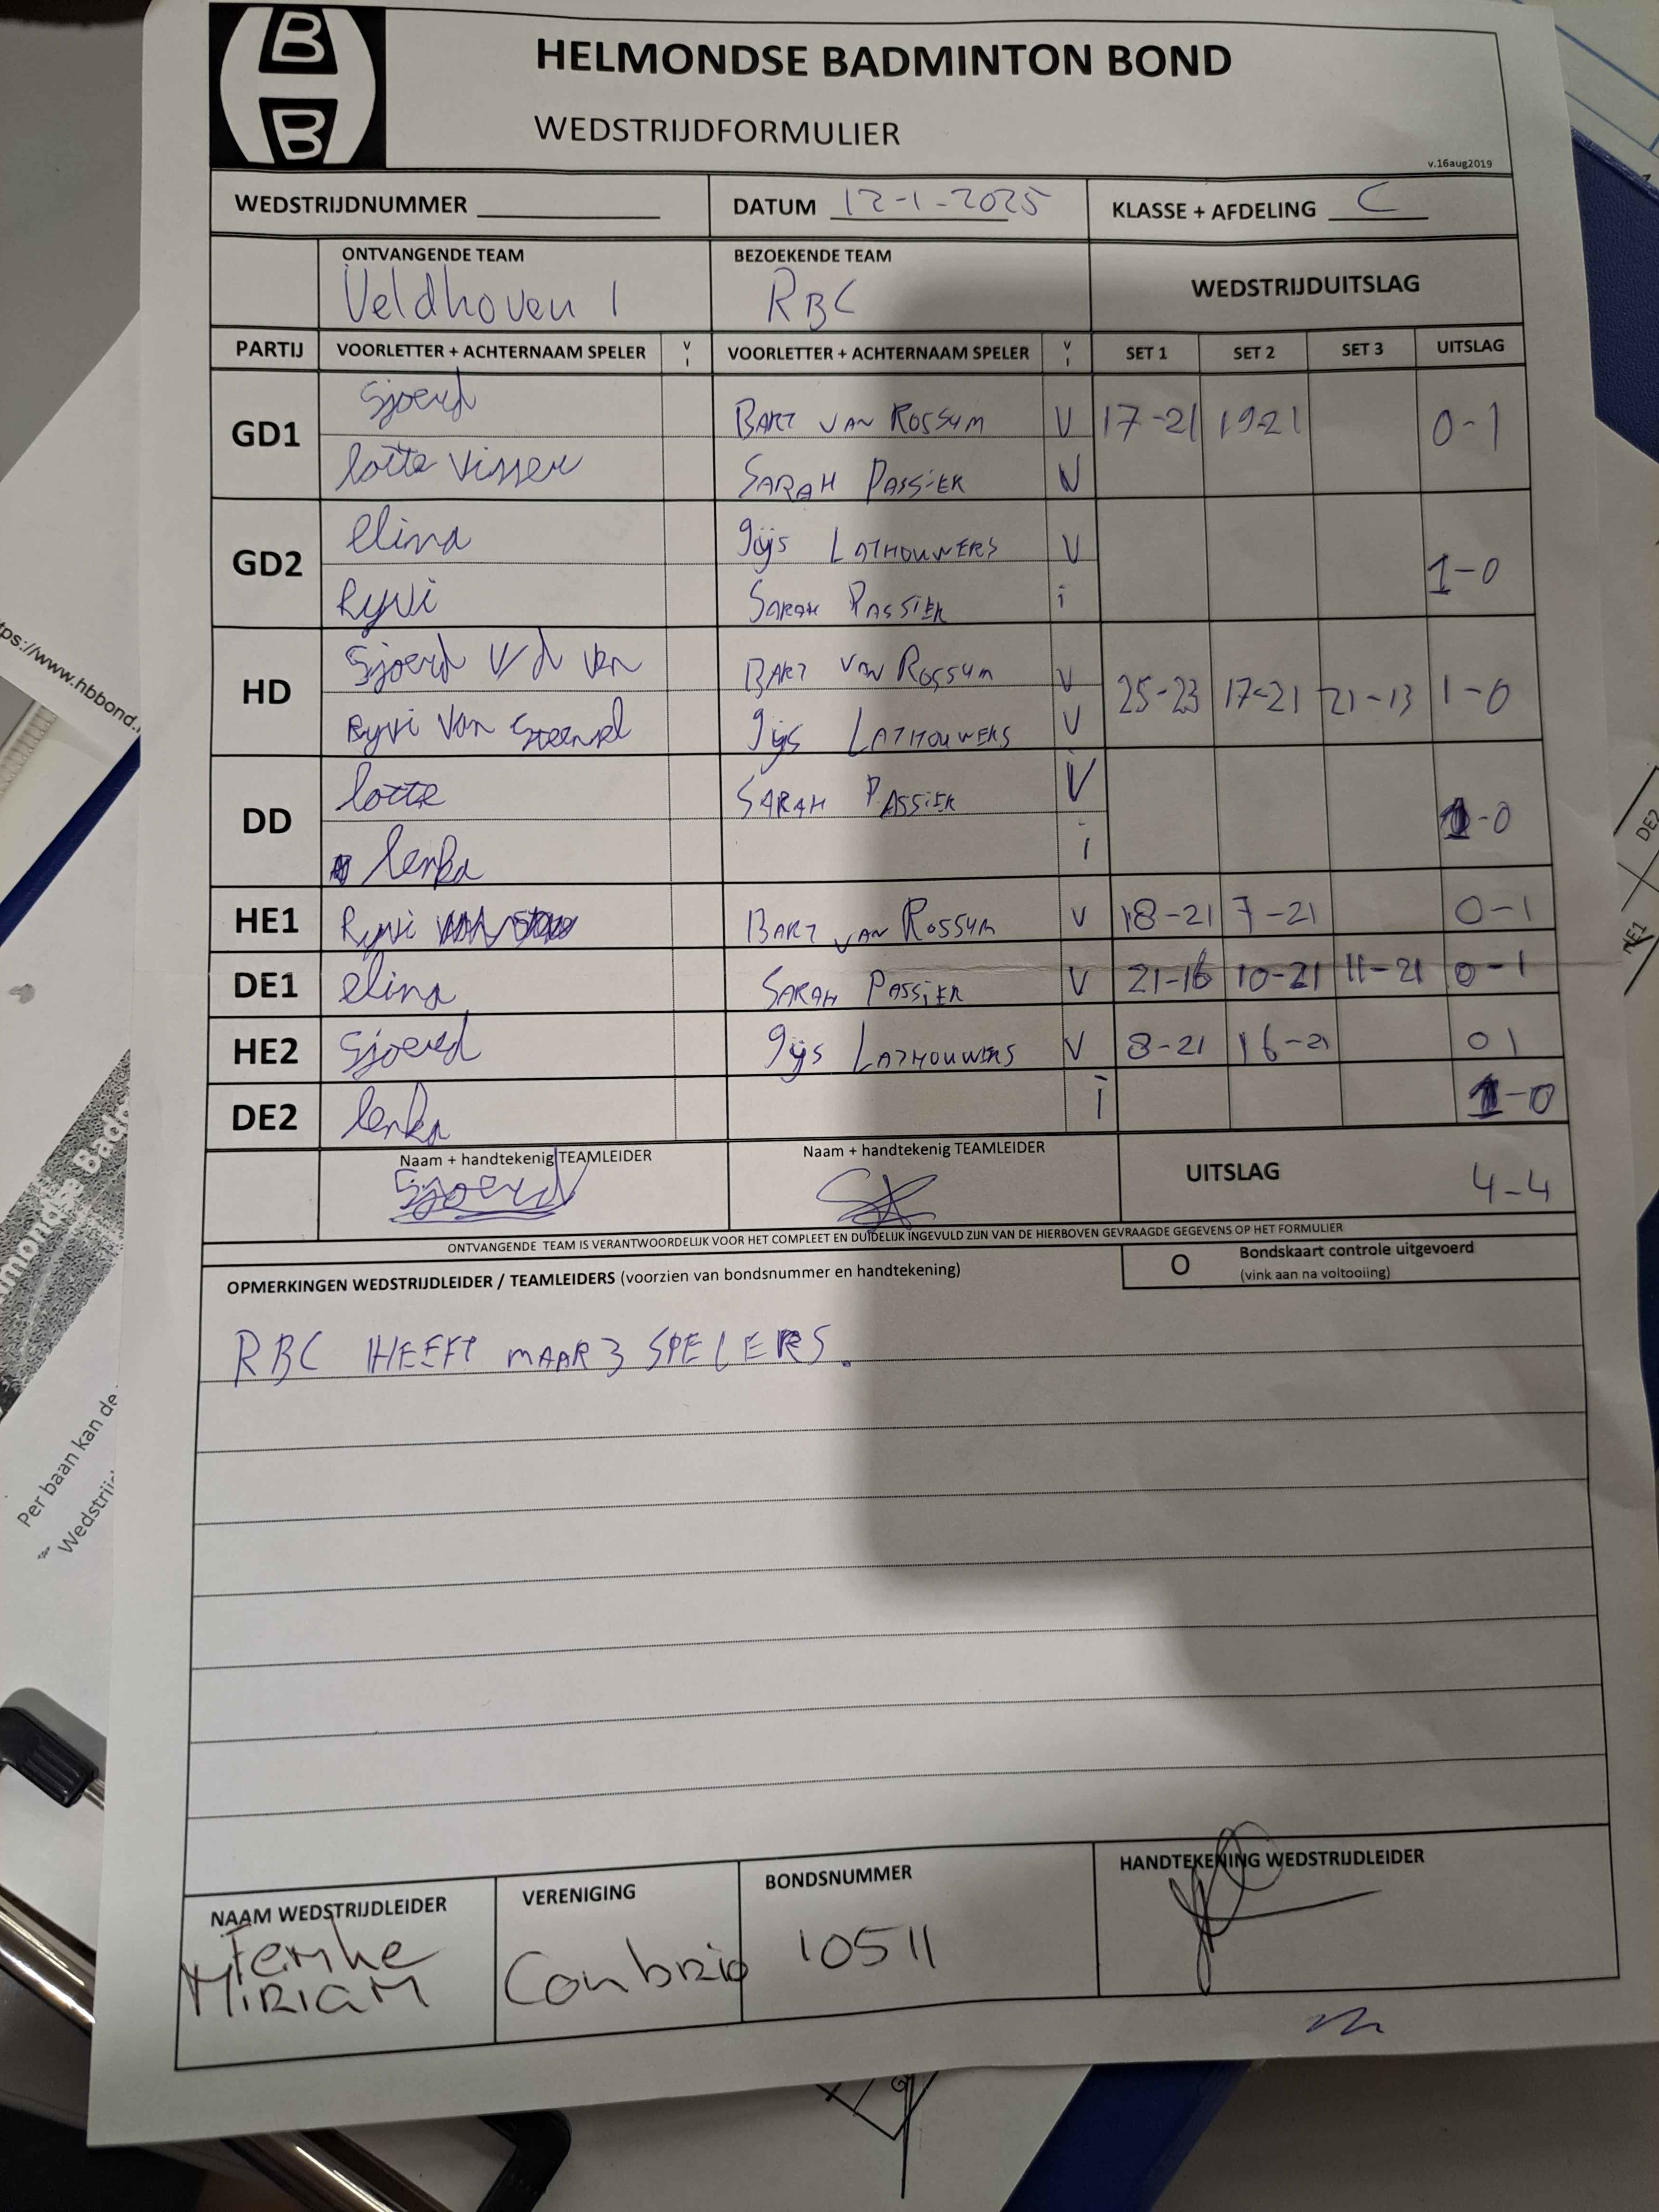 B
B
HELMONDSE BADMINTON BOND
WEDSTRIJDFORMULIER
v.16aug2019
WEDSTRIJDNUMMER
DATUM 12-1-2025
KLASSE + AFDELING C
ONTVANGENDE TEAM
BEZOEKENDE TEAM
WEDSTRIJDUITSLAG
Veldhoven 1
RBC
PARTIJ VOORLETTER + ACHTERNAAM SPELER V I VOORLETTER + ACHTERNAAM SPELER V I SET 1 SET 2 SET 3 UITSLAG
GD1
Sjoerd BART VAN ROSSUM V 17-21 19-21 0-1
lotte visser SARAH PASSIER V
GD2
elina gijs LATHOUWERS V 1-0
Ryvi SARAH PASSIER i
HD
Sjoerd v/d ven BART VAN ROSSUM V 25-23 17-21 21-13 1-0
Ryvi van gijs LATHOUWERS V
DD
lotte SARAH PASSIER V 1-0
lenka i
HE1 Ryvi BART VAN ROSSUM V 18-21 7-21 0-1
DE1 elina SARAH PASSIER V 21-16 10-21 11-21 0-1
HE2 Sjoerd gijs LATHOUWERS V 8-21 16-21 0 1
DE2 lenka i 1-0
Naam + handtekenig TEAMLEIDER
Naam + handtekenig TEAMLEIDER
UITSLAG 4-4
Sjoerd
ONTVANGENDE TEAM IS VERANTWOORDELIJK VOOR HET COMPLEET EN DUIDELIJK INGEVULD ZIJN VAN DE HIERBOVEN GEVRAAGDE GEGEVENS OP HET FORMULIER
OPMERKINGEN WEDSTRIJDLEIDER / TEAMLEIDERS (voorzien van bondsnummer en handtekening)
O Bondskaart controle uitgevoerd
(vink aan na voltooiing)
RBC HEEFT MAAR 3 SPELERS.
NAAM WEDSTRIJDLEIDER
VERENIGING
BONDSNUMMER
HANDTEKENING WEDSTRIJDLEIDER
Femke
MIRIAM
Conbrio
10511
tps://www.hbbond.
Per baan kan de
DE2